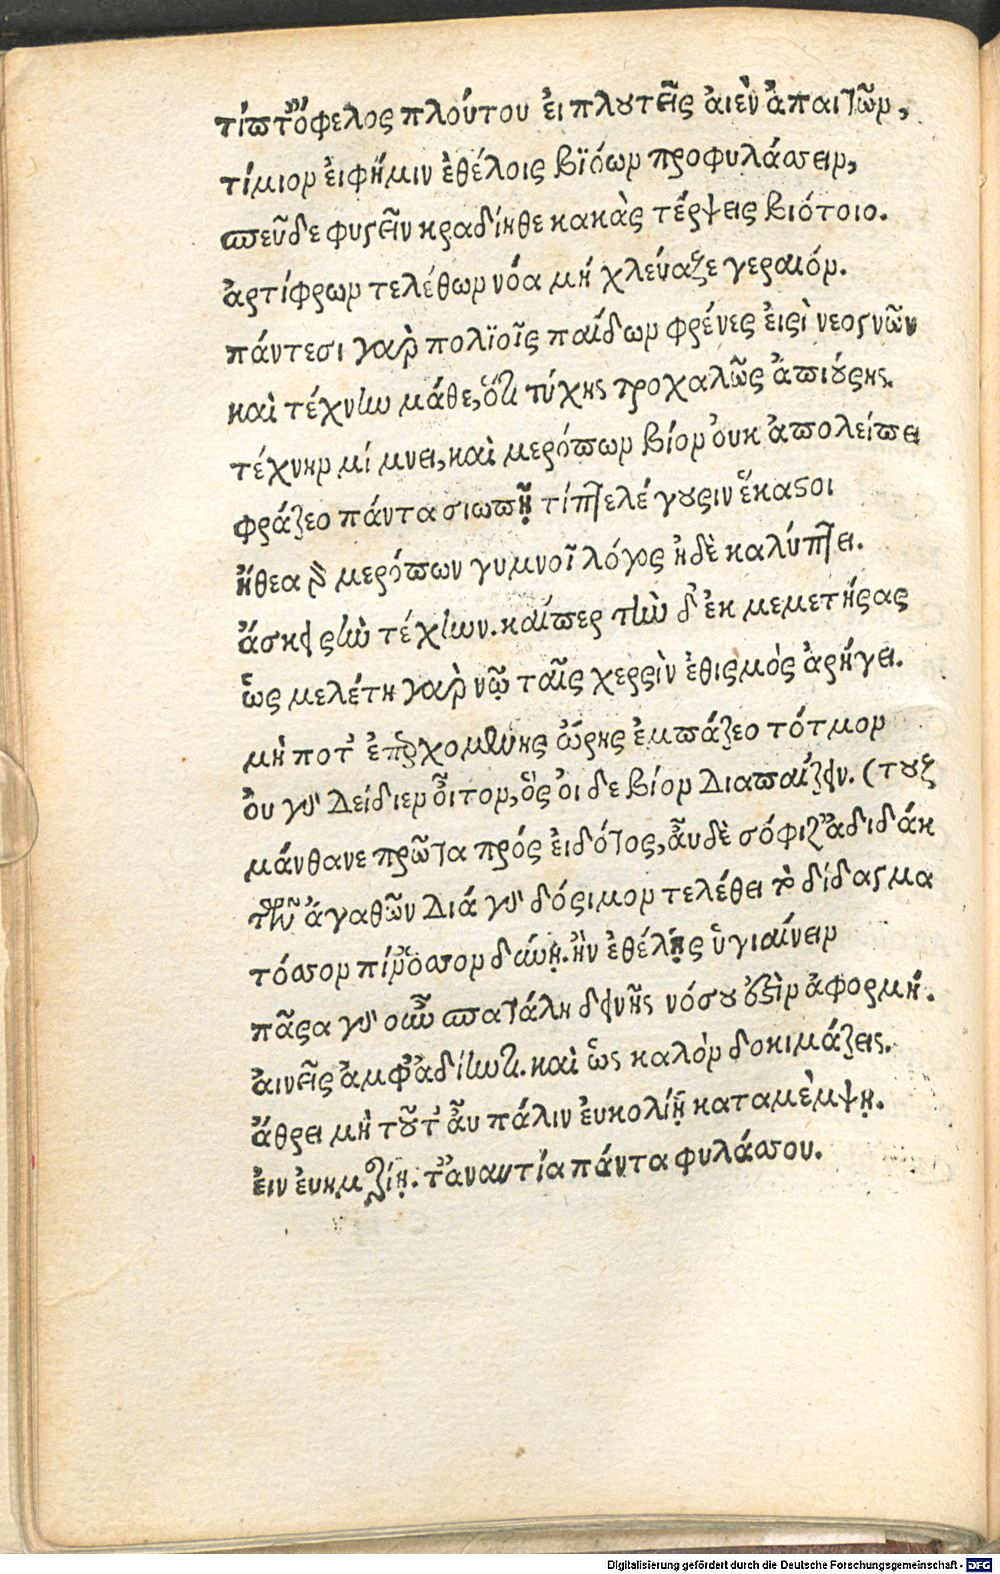 τίπτ' ὄφελος πλούτου ἐι πλουτεῖς ἀιὲν ἀπαιτῶν,
τίμιον ἐι φήμιν ἐθέλοις βϊόων προφυλάσσειν,
σπεῦδε φυγεῖν κραδίηθε κακὰς τέρψεις βιότοιο.
ἀρτίφρων τελέθων νόα μή χλεύαζε γεραιόν.
πάντεσι γὰρ πολϊοῖς παίδων φρένες ἐισὶ νεογνῶν
καὶ τέχνην μάθε, ὅτι τύχης τροχαλῶς ἀπιούσης.
τέχνην μί μνει, καὶ μερόπων βίον ὀυκ ἀπολείπει
φράζεο πάντα σιωπῇ τίπτε λέ γουσιν ἕκαστοι
ἤθεα μερόπων γυμνοῖ λόγος ἠδὲ καλύπτει.
ἄσκει σὴν τέχνην. καίπερ τὴν δ' ἐκ μεμετήρας
ὥς μελέτη γὰρ νῷ ταῖς χερσὶν ἐθισμὸς ἀρήγει.
μή ποτ' ἐπερχομένης ὥρης ἐμπάζεο τότμον
ὀυ γὰρ δείδιεν οἶτον, ὃς ὀι δε βίον διαπαίζειν. (τους
μάνθανε πρῶτα πρός ἐιδότος, ἆυ δὲ σόφιζ' ἀδιδάκ
τῶν ἀγαθῶν διά γὰρ δόσιμον τελέθει τὸ δίδασμα
τόσσον πίν' ὅσσον δώῃ. ἢν ἐθέλῃς ὑγιαίνειν
πᾶσα γὰρ οὖν σπατάλη δεινῆς νόσου ἐστὶν ἀφορμή.
ἀινεῖς ἀμφαδίην τι. καὶ ὥς καλὸν δοκιμάζεις.
ἄθρει μὴ τοῦτ' ἆυ πάλιν ἐυκολίῃ καταμὲμψῃ.
ἐιν ἐυημερίῃ. τ' ἀναντία πάντα φυλάσσου.
Digitalisierung gefördert durch die Deutsche Forschungsgemeinschaft - DFG